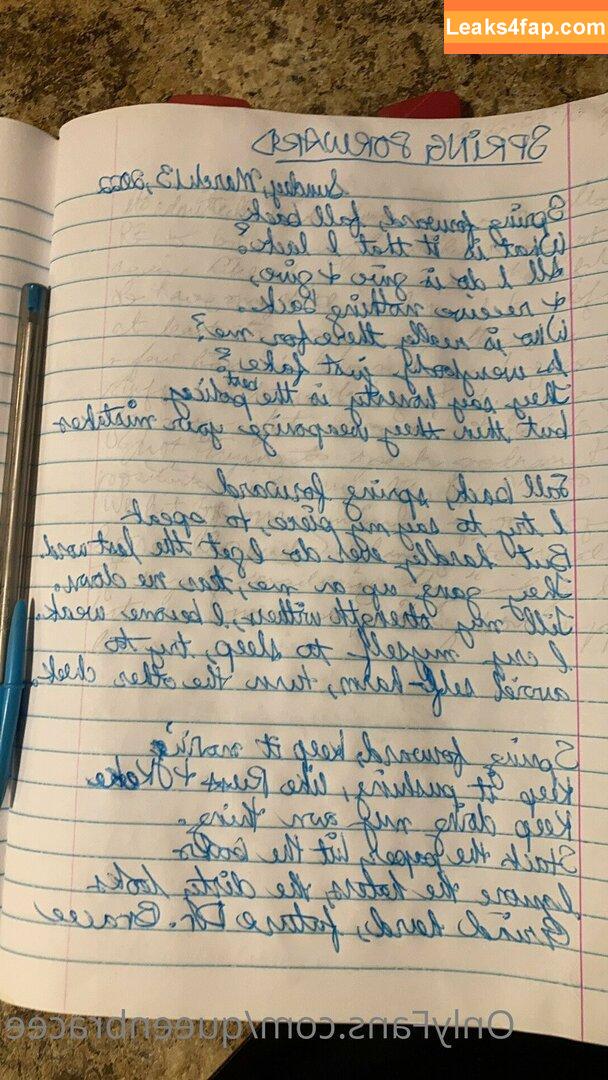 Leaks4fap.com
SPRING FORWARD
Sunday, March 13, 2022
Spring forward, fall back
What is it that I lack?
All I do is give & give,
& receive nothing back.
Who is really there for me?
Is everybody just fake?
They say honesty is the best policy
but then they weaponize your mistakes
Fall back, spring forward
I try to say my piece, to speak
But hardly ever do I get the last word.
They gang up on me, tear me down.
Till my strength withers, I become weak.
I cry myself to sleep, try to
avoid self-harm, turn the other cheek.
Spring forward, keep it movin'
Keep it pushing, like Push &
Keep doing my own thing.
Stack the paper, hit the books
Ignore the haters, the dirty looks
Grind hard, future Dr. Bracee
OnlyFans.com/queenbracee